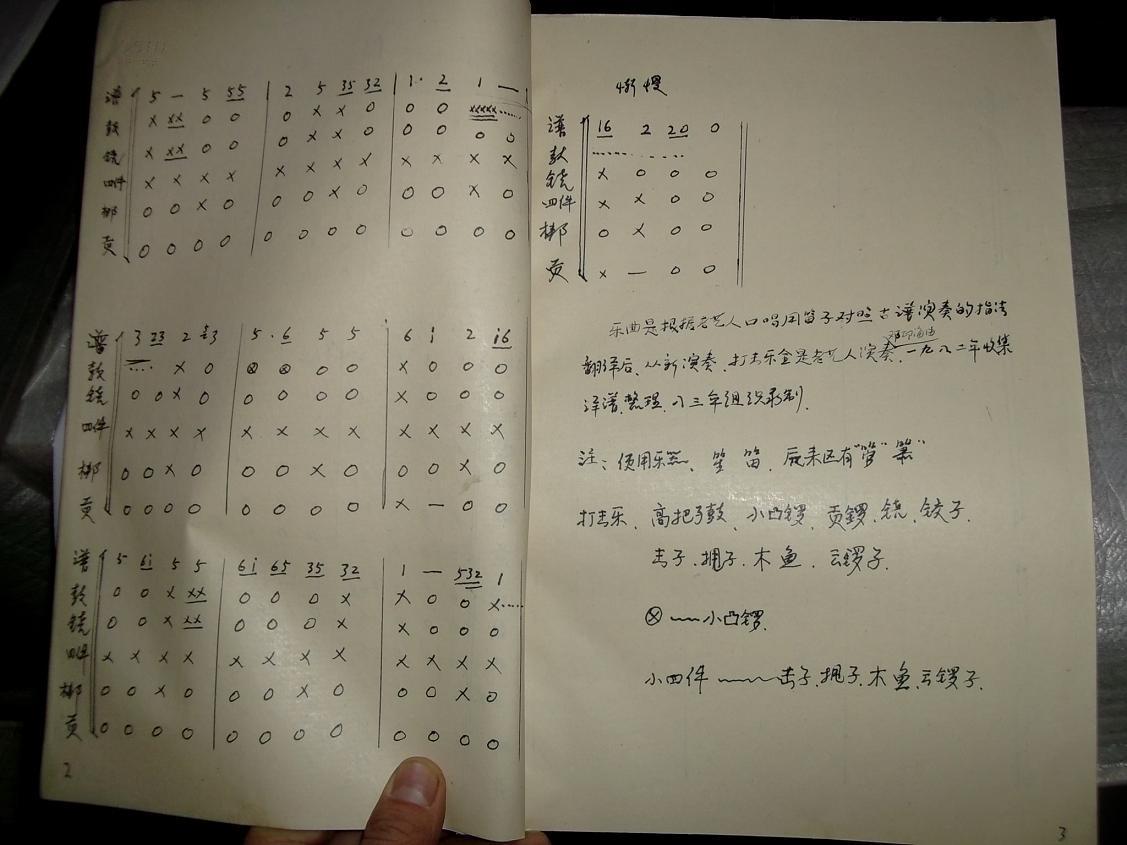 谱 5 — 5 55 | 2 5 35 32 | 1· 2 1 — |
鼓 x xx 0 0 0 x x 0 0 0 xxxxx ......
镜 x xx 0 0 0 x x 0 0 0 0 0
四件 x x x x x x x x x x x x
梆 0 0 x 0 0 0 x 0 0 0 x 0
贡 0 0 0 0 0 0 0 0 0 0 0 0
谱 3 23 2 3 | 5 · 6 5 5 | 6 i 2 i6
鼓 .... x 0 ⊗ ⊗ 0 0 x 0 0 0
镜 0 0 x 0 0 0 0 0 x 0 0 0
四件 x x x x x x x x x x x x
梆 0 0 x 0 0 0 x 0 0 0 x 0
贡 0 0 0 0 0 0 0 0 x — 0 0
谱 5 6i 5 5 | 6i 65 35 32 | 1 — 532 1
鼓 0 0 x xx 0 0 0 x x 0 0 x....
镜 0 0 x xx 0 0 0 x x 0 0 0
四件 x x x x x x x x x x x x
梆 0 0 x 0 0 0 x 0 0 0 x 0
贡 0 0 0 0 0 0 0 0 0 0 0 0
2
渐慢
谱 16 2 20 0
鼓 ...... ......
镜 x 0 0 0
四件 x x 0 0
梆 0 x 0 0
贡 x — 0 0
乐曲是根据老艺人口唱用笛子对照古谱演奏的指法
翻译后、从新演奏、打击乐全是老艺人演奏、一九八二年收集
译谱、整理、八三年组织录制.
注: 使用乐器、笙 笛、原来还有"管"
打击乐、高把子鼓、小凸锣、贡锣、镜、铰子.
击子、拥子、木鱼、云锣子.
⊗ —— 小凸锣.
小四件 —— 击子、拥子、木鱼、云锣子.
3